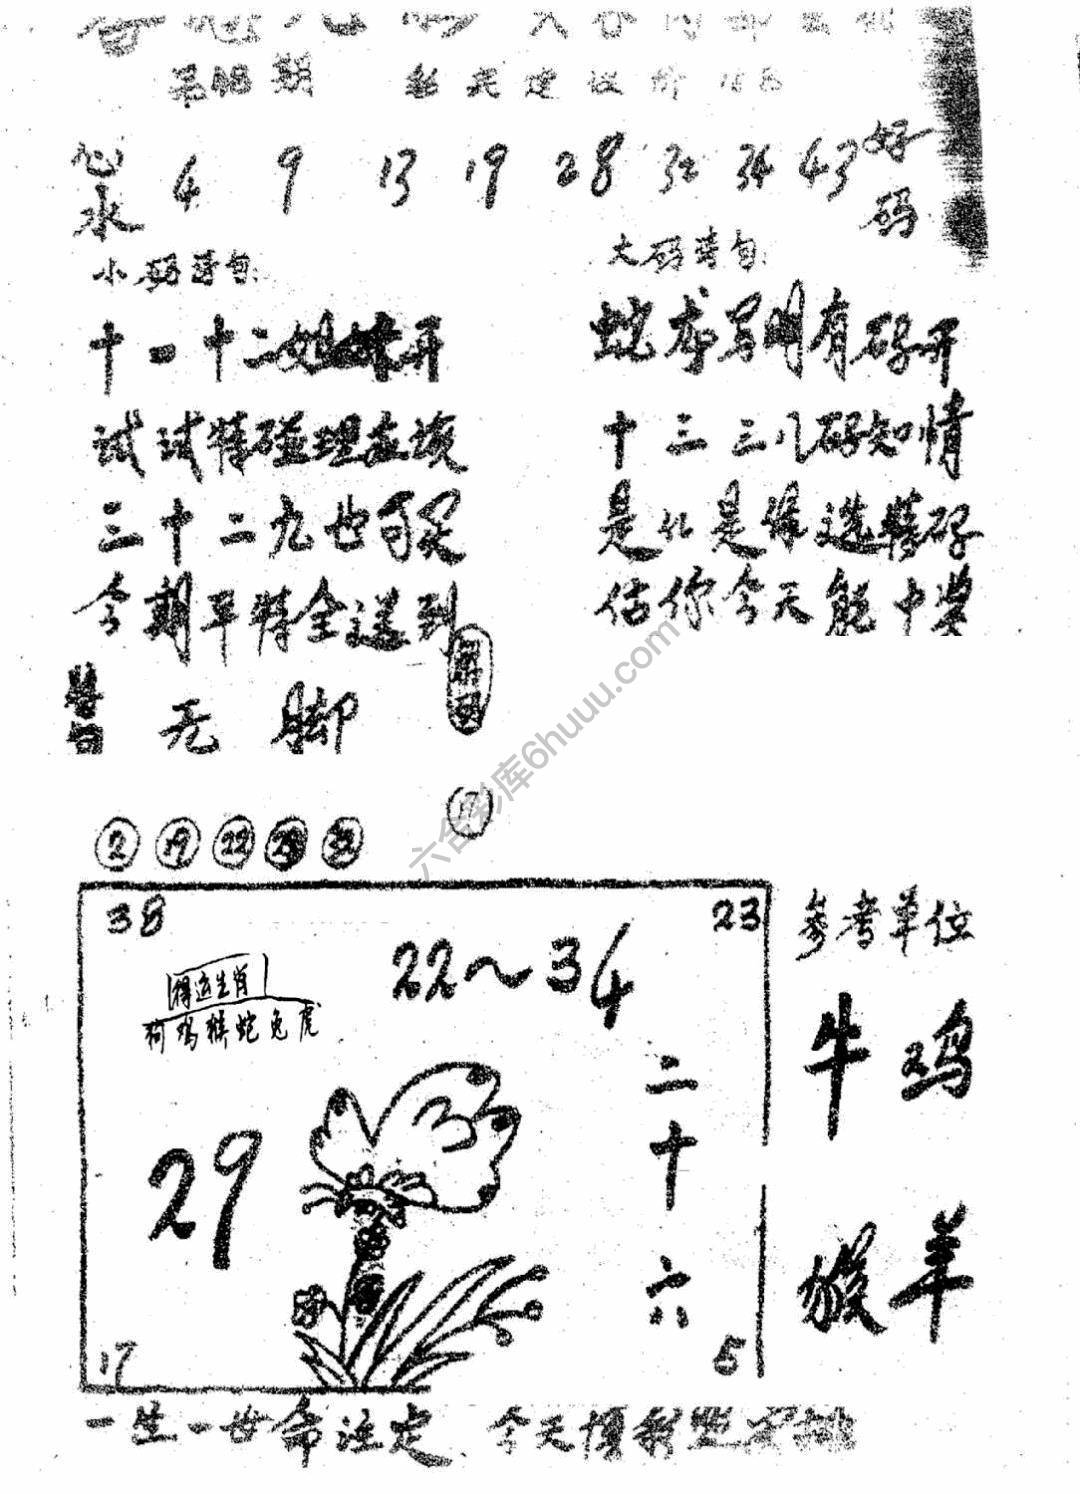 心水 4 9 13 19 28 32 34 43 好码
小码诗句:
十一十二姐妹开
试试特碰理应该
三十二九也可买
今期平特全送到
大码诗句:
蛇龙写明有码开
十三三八码知情
是几是你选特码
估你今天能中奖
无脚
17
2 19 22 32
38 23
得运生肖
狗鸡猴蛇兔虎
22～34
29
二十六
17 5
参考单位
牛鸡
猴羊
一生一世命注定 今天
六合彩库6huuu.com